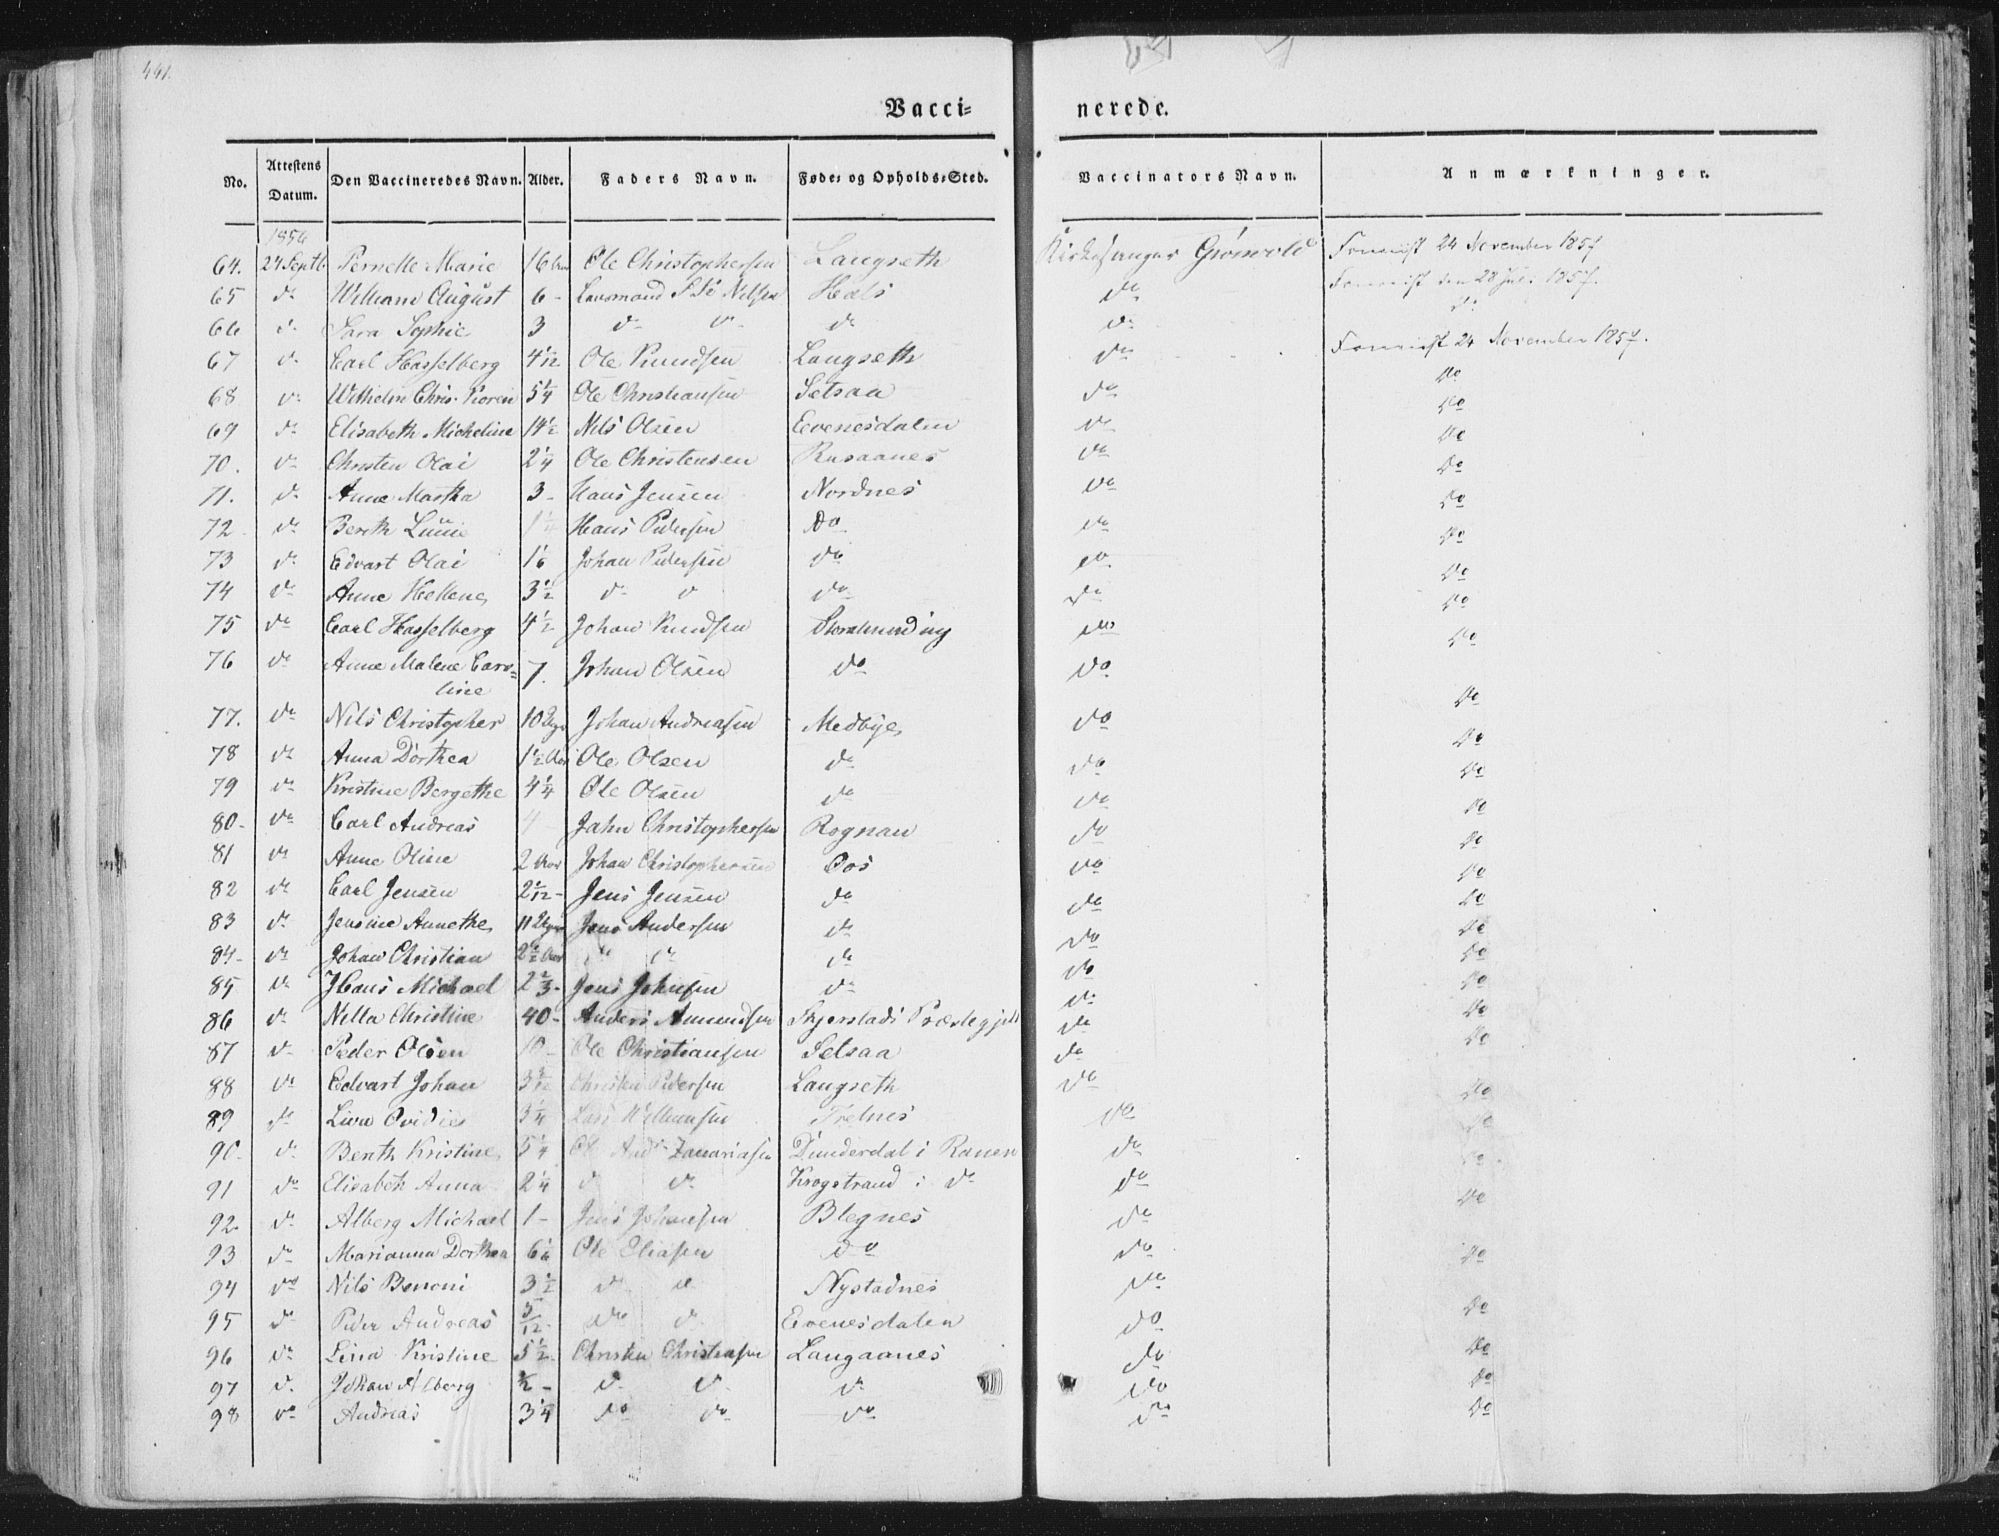 441.
Vacci= nerede.
No. Attestens Datum. Den Vaccineredes Navn. Alder. Faders Navn. Føde= og Opholds=Sted. Vaccinators Navn. Anmærkninger.
1856
64. 24 Septb Pernelle Marie 16 Aar Ole Christophersen Langseth Kirkesanger Grönvold 24 November 1857
65 do William August 6 - Lensmand Nilsen Hals do den 28 Juli 1857.
66 do Sara Sophie 3 do do do do do
67 do Carl Hasselberg 4 1/12 Ole Knudsen Langseth do 24 November 1857.
68 do Wilhelm Chris. Koren 5 1/4 Ole Christiansen Setsaa do do
69 do Elisabeth Micheline 14 1/2 Nils Olsen Evenesdalen do do
70. do Christen Olai 2 1/4 Ole Christensen Rusaanes do do
71. do Anne Martha 3 - Hans Jensen Nordnes do do
72 do Bereth Lucie 1 1/4 Hans Pedersen do do do
73 do Edvart Olai 1 1/6 Johan Pedersen do do do
74 do Anne Hellene 3 1/2 do do do do do
75 do Carl Hasselberg 4 1/2 Johan Knudsen do do
76 do Anne Malene Caro=
line 7. Johan Olsen do do do
77. do Nils Christopher 10 Johan Andreasen Medbye do do
78 do Anna Dorthea 1 1/2 Aar Ole Olsen do do do
79 do Kristine Bergethe 4 1/4 Ole Olsen do do do
80- do Carl Andreas 4 Jahn Christophersen Rognan do do
81 do Anne Oline 2 Aar Johan Christophersen Oos do do
82 do Carl Jensen 2 1/12 - Jens Jensen do do do
83 do Jensine Annethe 11 Jens Andersen do do do
84- do Johan Christian 2 1/2 Aar do do do do do
85 do Hans Michael 2 2/3 - Jens Johnsen do do do
86 do Nilla Christine 40- Anders Amundsen Skjerstads Præstegjeld do do
87 do Peder Olsen 10 - Ole Christiansen Setsaa do do
88 do Edvart Johan 3 Christen Pedersen Langseth do do
89 do Lina Ovidie 3 1/4 Lars Willumsen do do
90. do Berith Kristine 5 1/4 Ol And Zacariasen Dunderdal i Ranen do do
91 do Elisabeth Anna 2 1/4 do do Krogstrand i do do do
92. do Alberg Michael 1 - Jens Johansen Blegnes do
93 do Marianna Dorthea 6 1/6 Ole Eliasen do do do
94 do Nils Benoni 3 1/2 do do Nystadnes do
95 do Peder Andreas 3/12 do do Evenesdalen do do
96 do Lina Kristine 5 1/2 Christen Christensen Langaanes do do
97 do Johan Alberg 1/2 - do do do do do
98 do Andreas 3 1/4 do do do do do